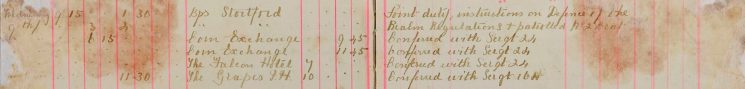 9 15 1 30 Bps Stortford Joint duty, instructions on Defence of the
2 Realm Regulations & patrolled
1 15 Corn Exchange 9 45 Conferred with Sergt 24
Corn Exchange 11 45 Conferred with Sergt 24
The Falcon Hotel 7 Conferred with Sergt 24
11 30 The Grapes P.H. 10 Conferred with Sergt 16H